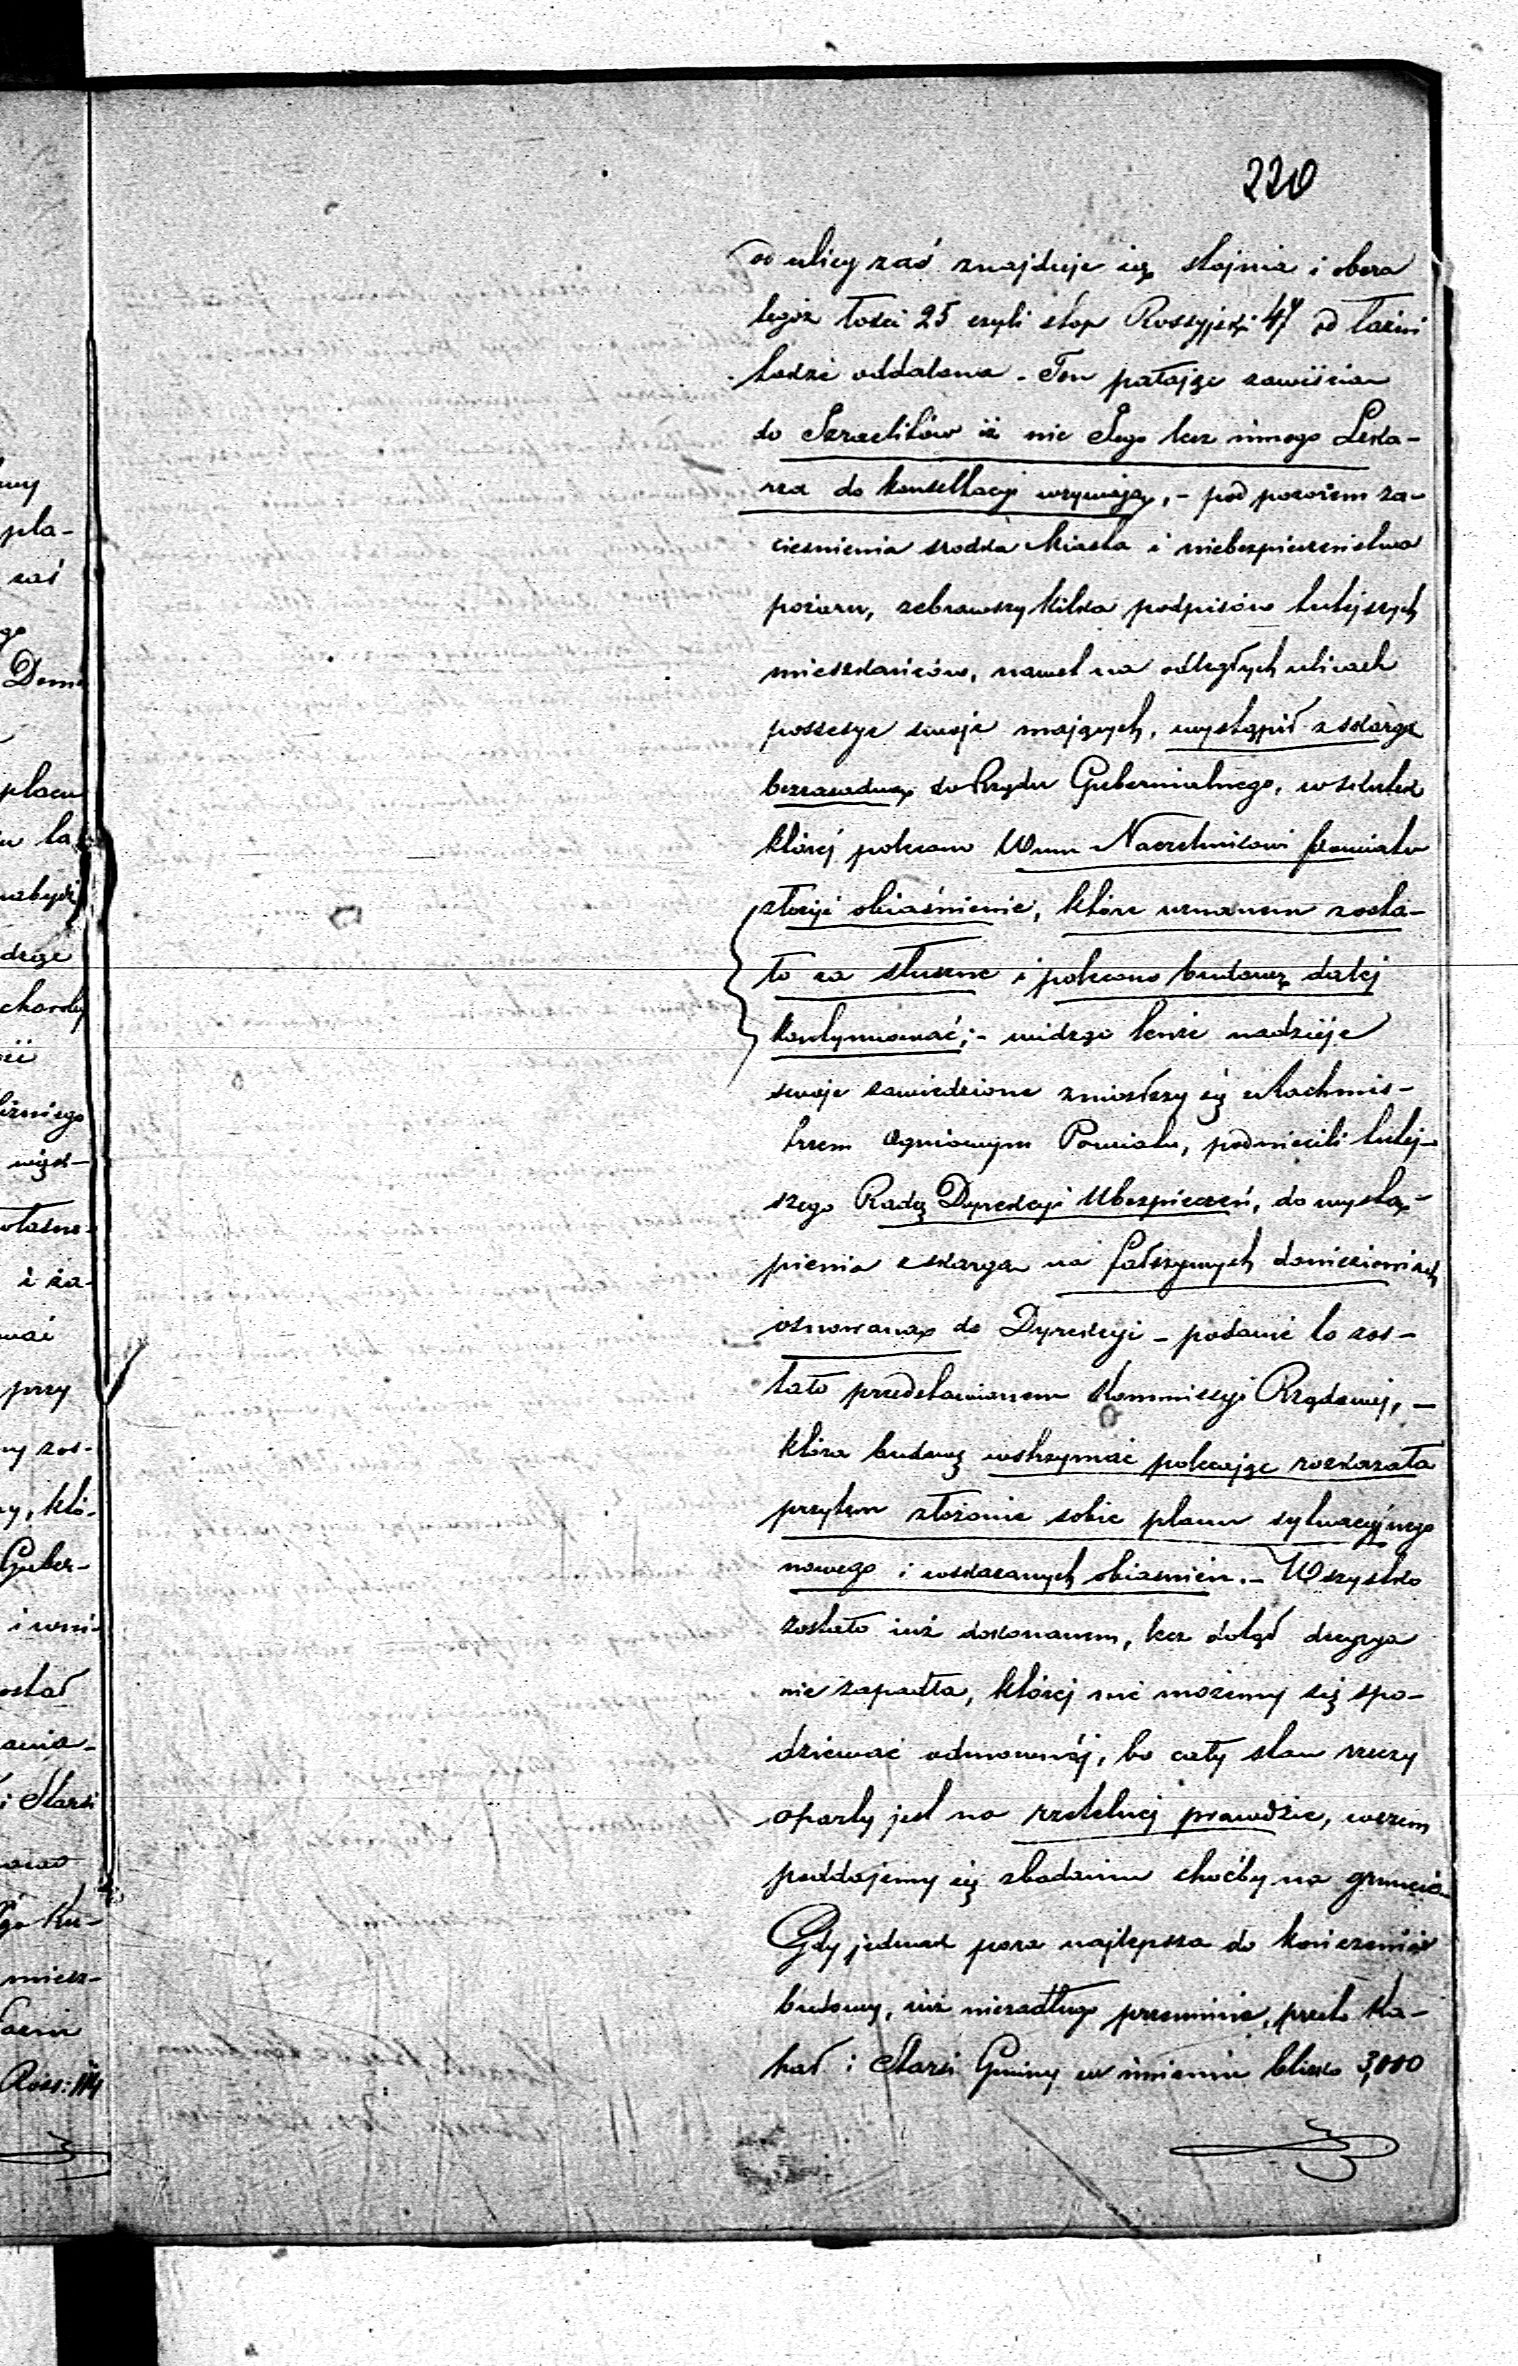 220
od ulicy zaś znajduje się stajnia i obora
tegoż łokci 25 czyli stop Rossyjski 47 od łaźni
ludzi oddalona - Ten pałając zawiścią
do Izraelitów iż nie Jego lecz innego Leka-
rza do konsultacji wzywają, - pod pozorem za-
cieśnienia srodka Miasta i niebezpieczeństwa
pożaru, zebrawszy kilka podpisów tutejszych
mieszkańców, nawet na odległych ulicach
possesye swoje mających, wystąpił z skargą
bezzasadną do Rządu Gubernialnego, w skutek
której polecono Wmu Naczelnikowi Powiatu
złożyć obiaśnienie, które uznanem zosta-
ło za słuszne i polecono budowę dalej
kontynuować; - widząc tenże nadzieje
swoje zawiedzione zniosłszy się z Rachmis-
trzem Ogniowym Powiatu, podniecili tutej-
szego Radcę Dyrekcyi Ubezpieczeń, do wystą-
pienia z skargą na fałszywych doniesieniach
osnowaną do Dyrekcyi - podanie to zos-
tało przedstawionem Kommissyi Rządowej, -
która budowę wstrzymać polecając rozkazała
przytem złożenie sobie planu sytuacyjnego
nowego i wskazanych obiasnień. - Wszystko
zostało już dokonanem, lecz dotąd decyzya
nie zapadła, której nie możemy się spo-
dziewać odmownéj, bo cały stan rzeczy
oparty jest na rzetelnej prawdzie, w czem
poddajemy się zbadaniu choćby na gruncie
Gdy jednak pora najlepsza do kończenia
budowy, już niezadługo przeminie, przeto Ka-
hał i Starsi Gminy w imieniu blisko 3,000